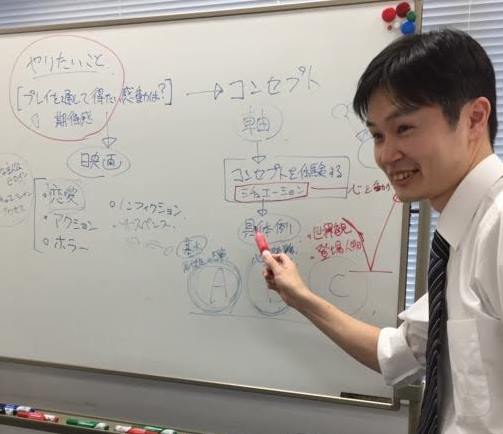 やりたいこと
[プレイを通して得たい感動は?] → コンセプト
期待感
軸
映画
コンセプトを体験する
シチュエーション
・恋愛
・ノンフィクション
・アクション
・サスペンス
・ホラー
具体例
・世界観
・登場人物
基本
A
C